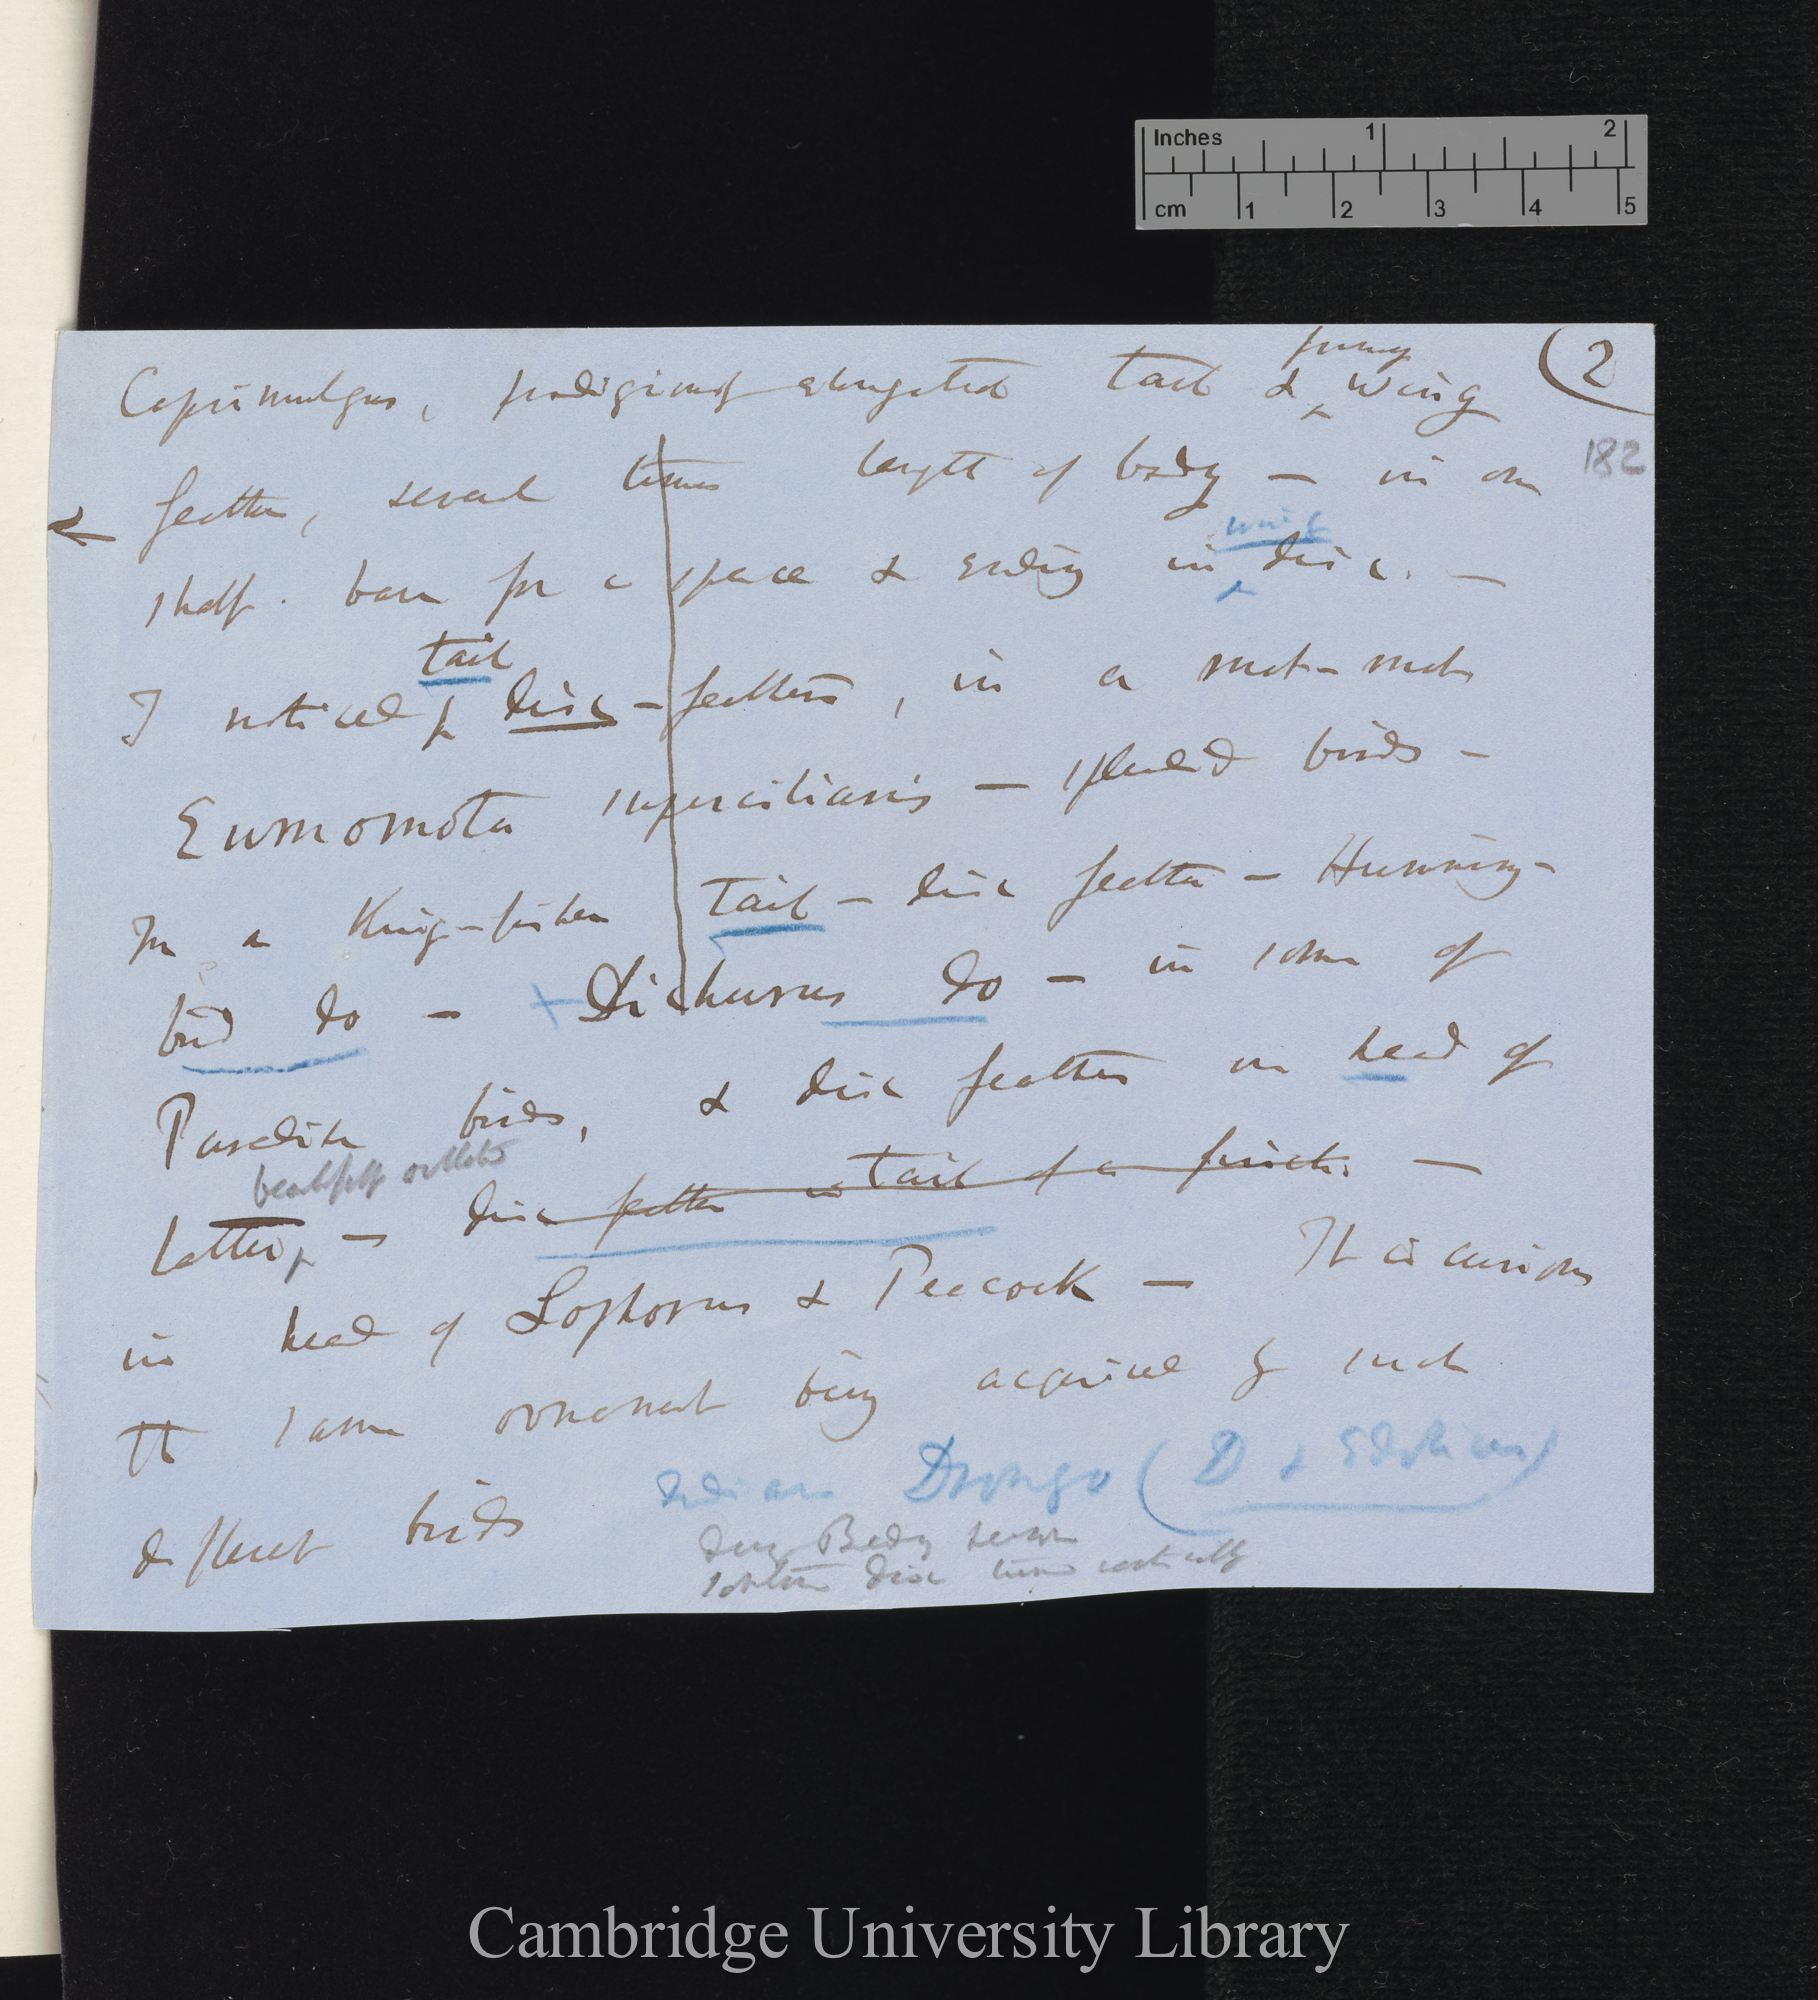 Inches 1 2
cm 1 2 3 4 5
(2
182
Caprimulgus, prodigiously elongated tail & ^primary wing
feather, several times length of body — in one
shaft bare for a space & ending in ^wing disc. —
I noticed ^tail disc-feathers, in a mot-mot
Eumomota superciliaris — splendid birds —
In a King-fisher tail — disc feather — Humming-
bird do — + Dichurus do — in some of
Paradise birds, & disc feathers on head of
latter, ^beautifully ocellated — disc feather in tail of a finch. —
in head of Lophorus & Peacock — It is curious
tt same ornament being acquired by such
different birds
Indian Drongo (D & Edolius)
Disc